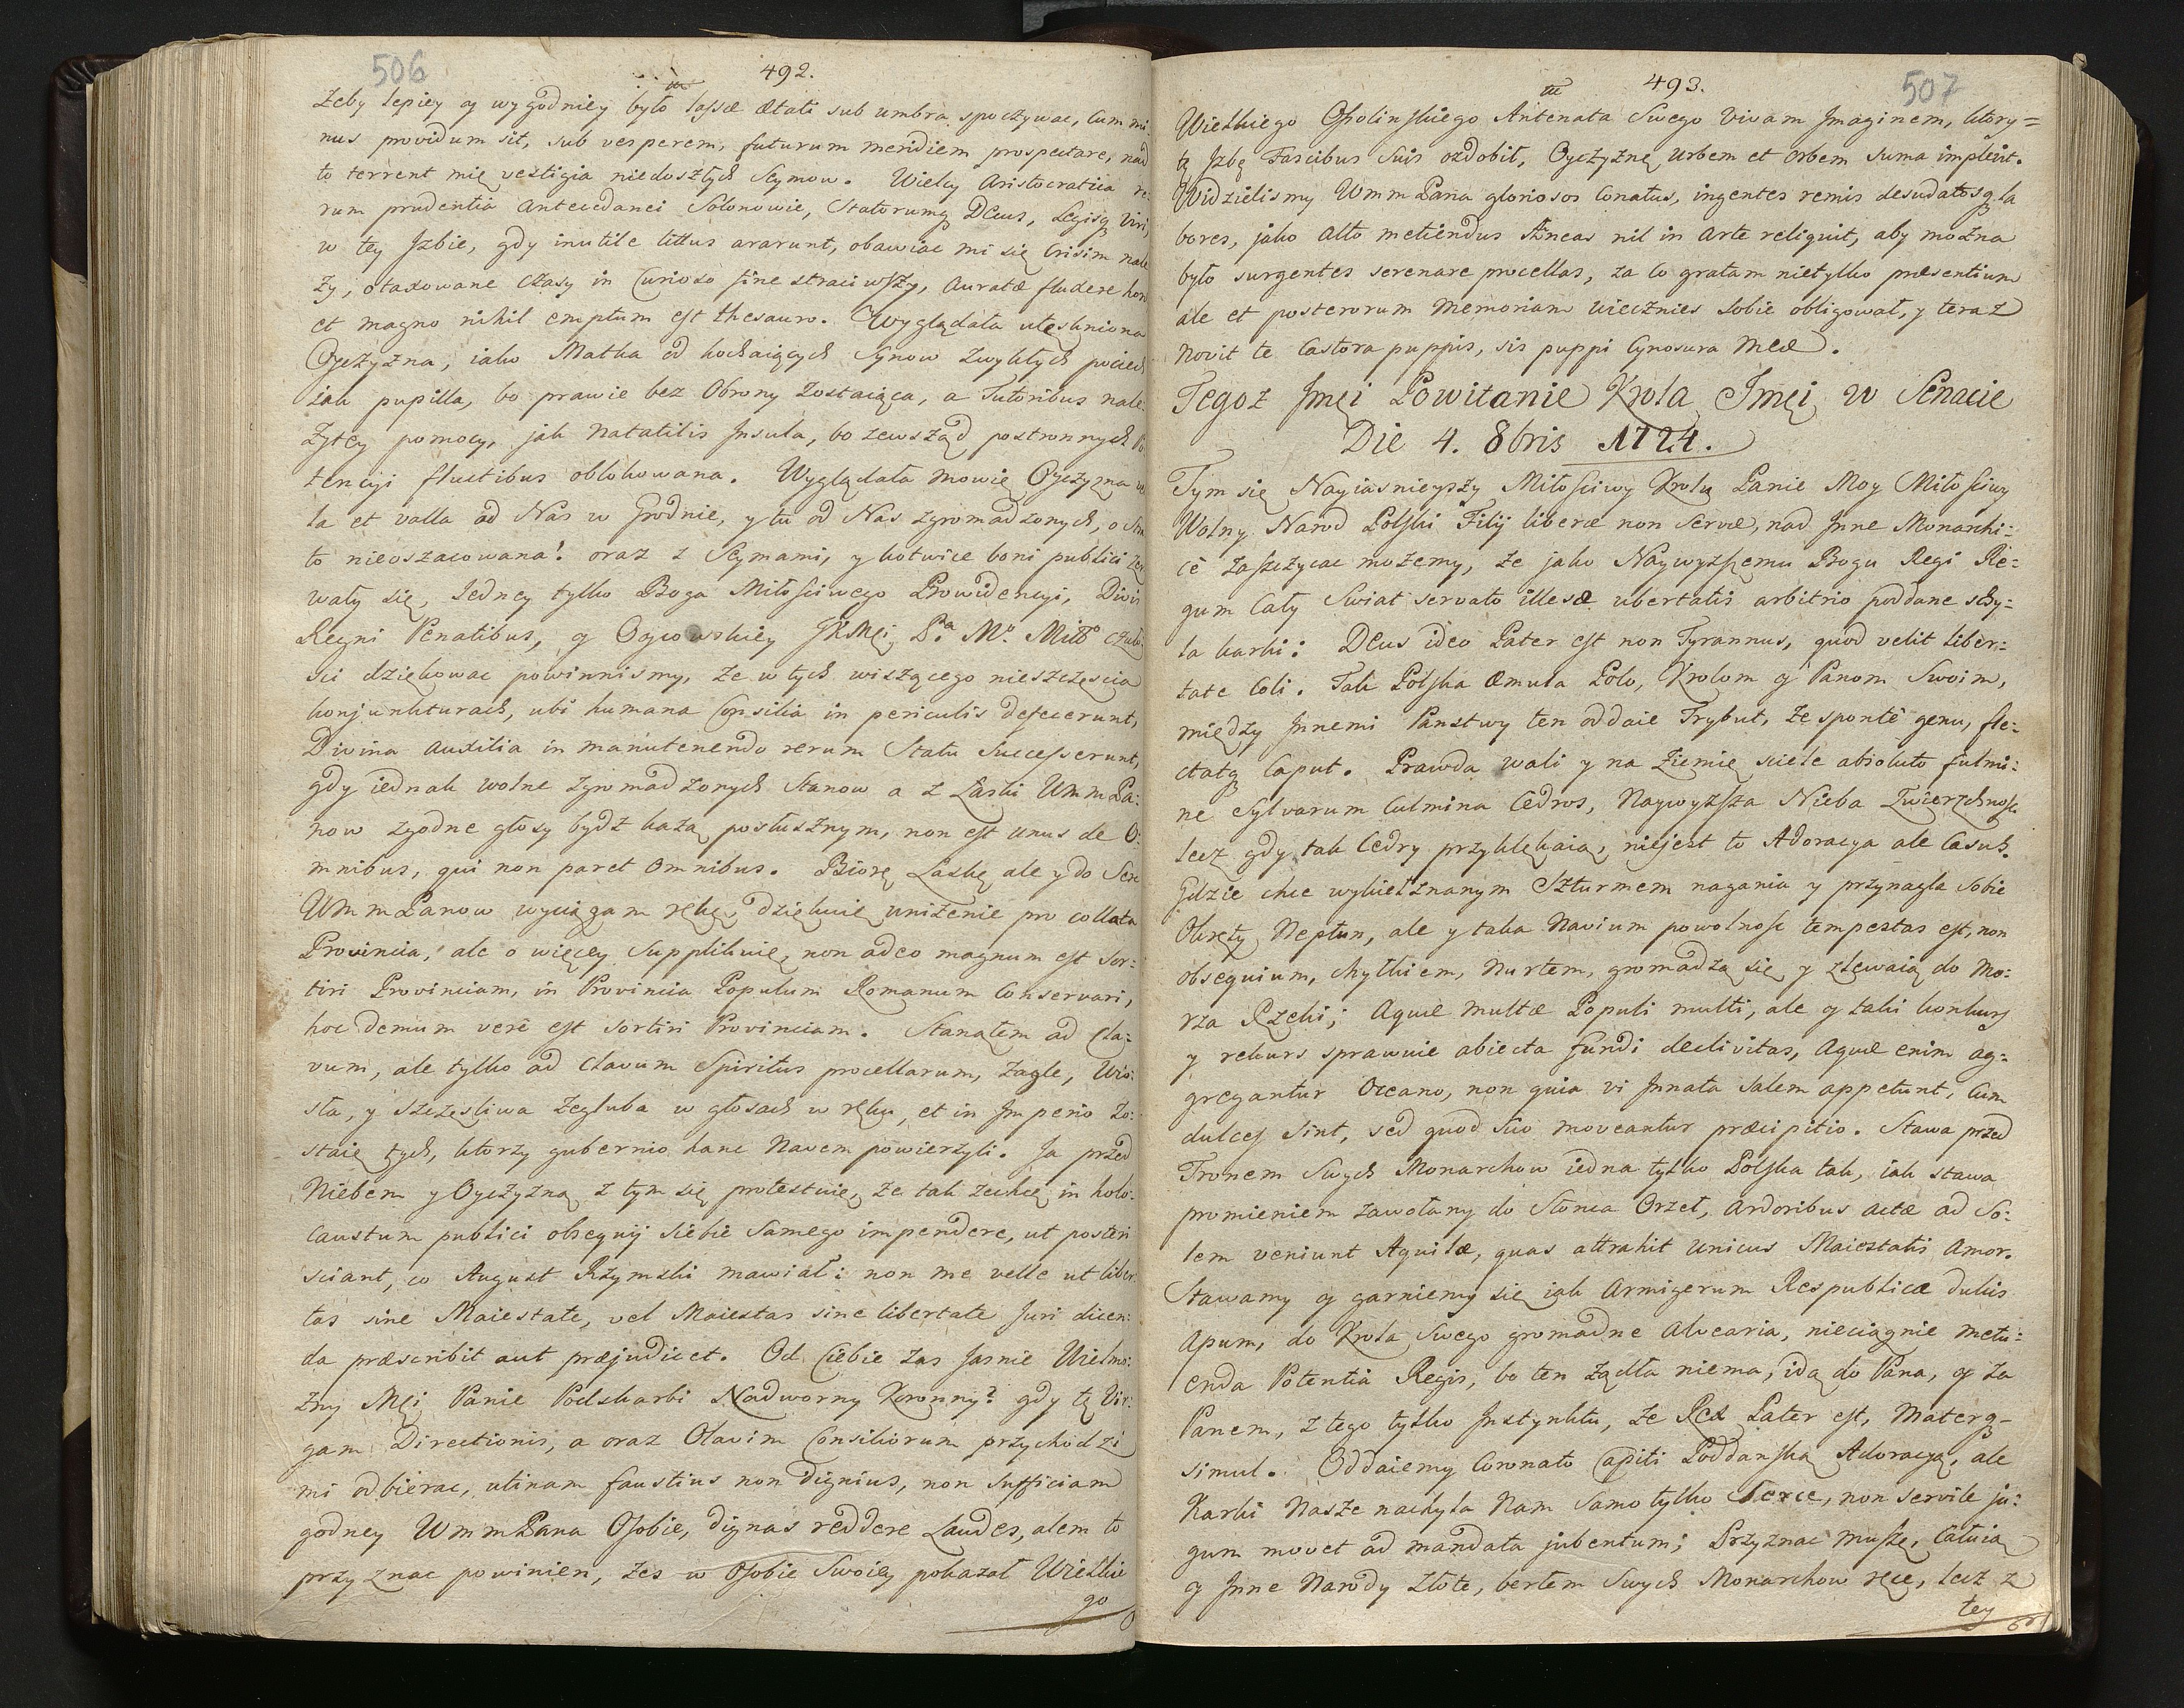 506
492.
żeby lepiey y wygodniey było lassæ ætati sub umbra spoczywac, cum mi-
nus providum sit, sub vesperem, futurum meridiem prospectare, nad
to terrent mię vestigia niedoszłych Seymow. Wielcy Aristocratica re-
rum prudentia antecedanei Solonowie, Statorumq Decus, Legisq Viri,
w tey Jzbie, gdy inutile littus ararunt, obawiac mi się Crisim nale
ży, otaxowane czasy in Curioso sine straciwszy, auratæ studere
et magno nihil emptum est thesauro. Wyglądała utęskniona
Oyczyzna, iako Matka od kochaiących Synow zwykłych pociech
iak pupilla, bo prawie bez Obrony zostaiąca, a Tutoribus nale-
zytey pomocy, jak Natatilis Jnsula, bo zewsząd postronnych Po
tencyi fluctibus oblokowana. Wyglądała mowię Oyczyzna
la et valla od Nas w Grodnie, y tu od Nas zgromadzonych, o
to nieoszacowana! oraz z Seymami, y kotwice boni publici zer
wały się, Jedney tylko Boga Miłosciwego Prowidencyi, Divis
Regni Penatibus, y Oycowskiey JKMci Pa Mo Miłło czuło-
sci dziękowac powinnismy, że w tych wiszącego nieszczęscia
konjunkturach, ubi humana Consilia in periculis defecerunt,
Divina auxilia in manutenendo rerum Statu Successerunt,
gdy iednak wolne zgromadzonych Stanow a z Łaski UmmPa-
now zgodne głosy bydz każą posłusznym, non est unus de O-
mnibus, qui non paret omnibus. Biorę Laskę ale y do Serc
UmmPanow wyciągam rękę, dziękuię uniżenie pro collata
Provincia, ale o więcey Supplikuię, non adeo magnum est sor-
tiri Provinciam, in Provincia Populum Romanum Conservari,
hoc demum verè est sortiri Provinciam. Stanąłem ad Cla-
vum, ale tylko ad clavum Spiritus procellarum, Zagle, Wio-
sła, y szczęsliwa Zegluba w głosach w ręku, et in Jmperio zo-
staię tych, ktorzy gubernio hanc Navem powierzyli. Ja przed
Niebem y Oyczyzną z tym się protestuię, że tak zechcę in holo-
caustum publici obsequij siebie Samego impendere, ut posteri
sciant, co August Rzymski mawiał: non me velle ut liber-
tas sine Maiestate, vel Maiestas sine libertate Juri dicen-
da præscribit aut præjudicet. Od Ciebie zas Jasnie Wielmo-
żny Mci Panie Podskarbi Nadworny Koronny? gdy tę Vir-
gam Directionis, a oraz Clavim Consiliorum przychodzi
mi odbierac, utinam faustius non dignius, non sufficiam
godney UmmPana Osobie, dignas reddere Laudes, alem to
przyznac powinien, żes w Osobie Swoiey pokazał Wielkie
go
507
493.
Wielkiego Ossolinskiego Antenata Swego vivam Jmaginem, ktory=
tę Jzbę Fascibus Suis ozdobił, Oyczyznę Urbem et Orbem suma implevit.
Widzielismy UmmPana gloriosos Conatus, ingentes remis desudatosq la
bores, jako alto metiendus Æneas nil in arte reliquit, aby można
było surgentes serenare procellas, za co gratam nietylko præsentium
ale et posterorum Memoriam wiecznies sobie obligował, y teraz
Novit te Castora puppis, sis puppi Cynosura meæ.
Tegoż Jmci Powitanie Krola Jmci w Senacie
Die 4. 8bris 1724.
Tym się Nayiasnieyszy Miłosciwy Krolu Panie Moy Miłosciwy
Wolny Narod Polski Filij liberæ non Servæ, nad Jnne Monarchi-
ie zaszczycac możemy, że jako Naywyższemu Bogu Regi Re-
gum Cały Swiat servato illesæ ubertatis arbitrio poddane schy-
la karki: Deus ideo Pater est non Tyrannus, quod velit liber-
tate Coli. Tak Polska æmula Polo, Krolom y Panom Swoim,
między Jnnemi Panstwy ten oddaie Trybut, że spontè genu, fle-
ctatq Caput. Prawda wali y na Ziemię sciele absoluto fulmi-
ne Sylvarum Culmina Cedros, Naywyższa Nieba Zwierzchnosc
lecz gdy tak Cedry przyklękaią, niejest to Adoracya ale Casus.
Gdzie chce wykiełznanym Szturmem nagania y przynagla Sobie
Okręty Neptun, ale y taka Navium powolnosc tempestas est, non
obsequium, chyłkiem, Nurtem, gromadzą się y zlewaią do Mo-
rza Rzeki; Aquæ multæ Populi multi, ale y taki konkurs
y rekurs sprawuie abiecta fundi declivitas, Aquæ enim ag-
gregantur Oceano, non quia vi Jnnata Salem appetunt, Cum
dulces sint, sed quod suo moveantur præcipitio. Stawa przed
Tronem Swych Monarchow iedna tylko Polska tak, iak stawa
promieniem zawołany do Słonca Orzeł, ardoribus actæ ad So-
lem veniunt Aquilæ, quas attrahit unicus Maiestatis Amor.
Stawamy y garniemy się iak Armigerum Respublicæ dulcis
Apum, do Krola Swego gromadne Alvearia, nieciągnie metu-
enda Potentia Regis, bo ten żądła niema, idą do Pana, y za
Panem, z tego tylko Jnstynktu, że Rex Pater est, Materq-
simul. Oddaiemy Coronato Capiti Poddanską Adoracyą, ale
Karki Nasze nachyla Nam Samo tylko Serce, non servile ju-
gum movet ad mandata jubentum; Przyznac muszę, Całuią
y Jnne Narody złote, berłem Swych Monarchow ręce, lecz z
tey